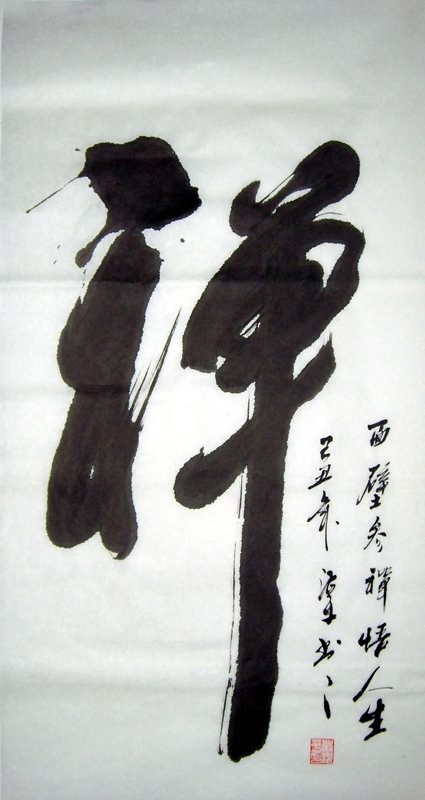 禅
面壁参禅悟人生
己丑年 书